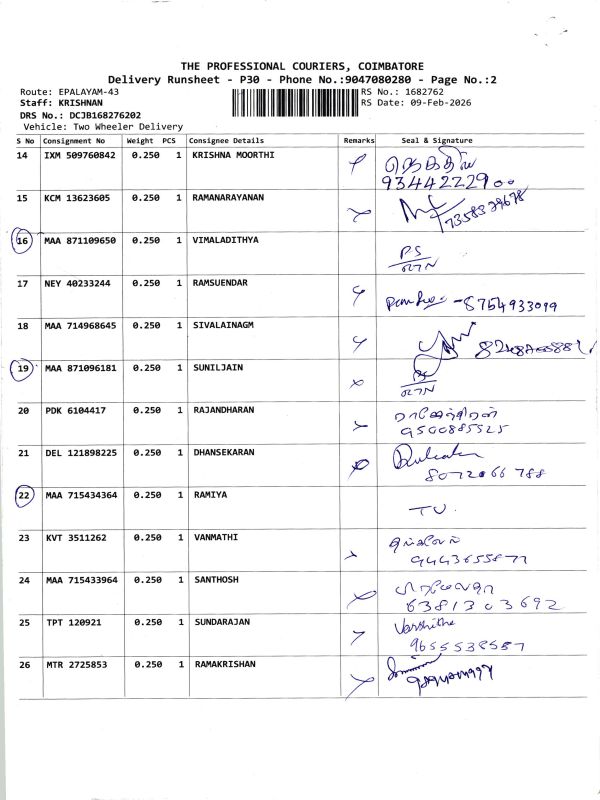 THE PROFESSIONAL COURIERS, COIMBATORE
Delivery Runsheet - P30 - Phone No.:9047080280 - Page No.:2
Route: EPALAYAM-43 RS No.: 1682762
Staff: KRISHNAN RS Date: 09-Feb-2026
DRS No.: DCJB168276202
Vehicle: Two Wheeler Delivery
S No Consignment No Weight PCS Consignee Details Remarks Seal & Signature
14 IXM 509760842 0.250 1 KRISHNA MOORTHI
9344222900
15 KCM 13623605 0.250 1 RAMANARAYANAN
7358329678
16 MAA 871109650 0.250 1 VIMALADITHYA
PS
RTN
17 NEY 40233244 0.250 1 RAMSUENDAR
-8754933099
18 MAA 714968645 0.250 1 SIVALAINAGM
19 MAA 871096181 0.250 1 SUNILJAIN
PS
RTN
20 PDK 6104417 0.250 1 RAJANDHARAN
ராஜேந்திரன்
9500885525
21 DEL 121898225 0.250 1 DHANSEKARAN
8072066788
22 MAA 715434364 0.250 1 RAMIYA
TV.
23 KVT 3511262 0.250 1 VANMATHI
9443655877
24 MAA 715433964 0.250 1 SANTHOSH
6381303692
25 TPT 120921 0.250 1 SUNDARAJAN
Varshitha
9655538587
26 MTR 2725853 0.250 1 RAMAKRISHAN